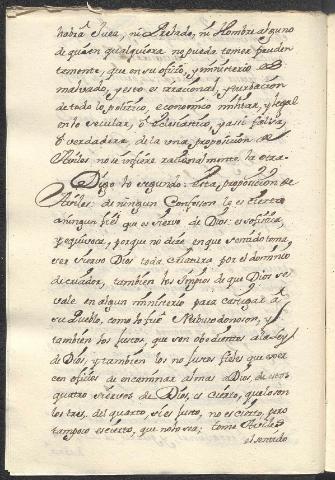 habrá Juez, ni Prelado, ni Hombre alguno
de quien qualquiera no pueda temer pruden
temente, que en su oficio, y ministerio es
malvado, y esto es irracional, y turbacion
de todo lo politico, economico militar, y legal
en lo secular, ô Eclesiastico, y assi falsa,
ô verdadera de la una, proposicion de
Aviles no se infiere racionalmente la otra.
Digo lo segundo: Esta proposicion de
Aviles: de ningun Confesor lo es cierto
a ningun fiel que es siervo de Dios: es sofistica,
y equivoca, porque no dice en que sentido toma
ser siervo Dios toda criatura por el dominio
de criador, tambien los Impios de que Dios se
vale en algun ministerio para castigar â
su Pueblo, como lo fue Nabucodonosor, y
tambien los Justos, que son obedientes a la Ley
de Dios, y tambien los no Justos fieles que exer
cen oficios de encaminar almas a Dios, de estos
quatro siervos de Dios, es cierto, quales son
los tres, del quarto, si es justo, no es cierto, pero
tampoco es cierto, que no lo sea; como Aviles
el sentido